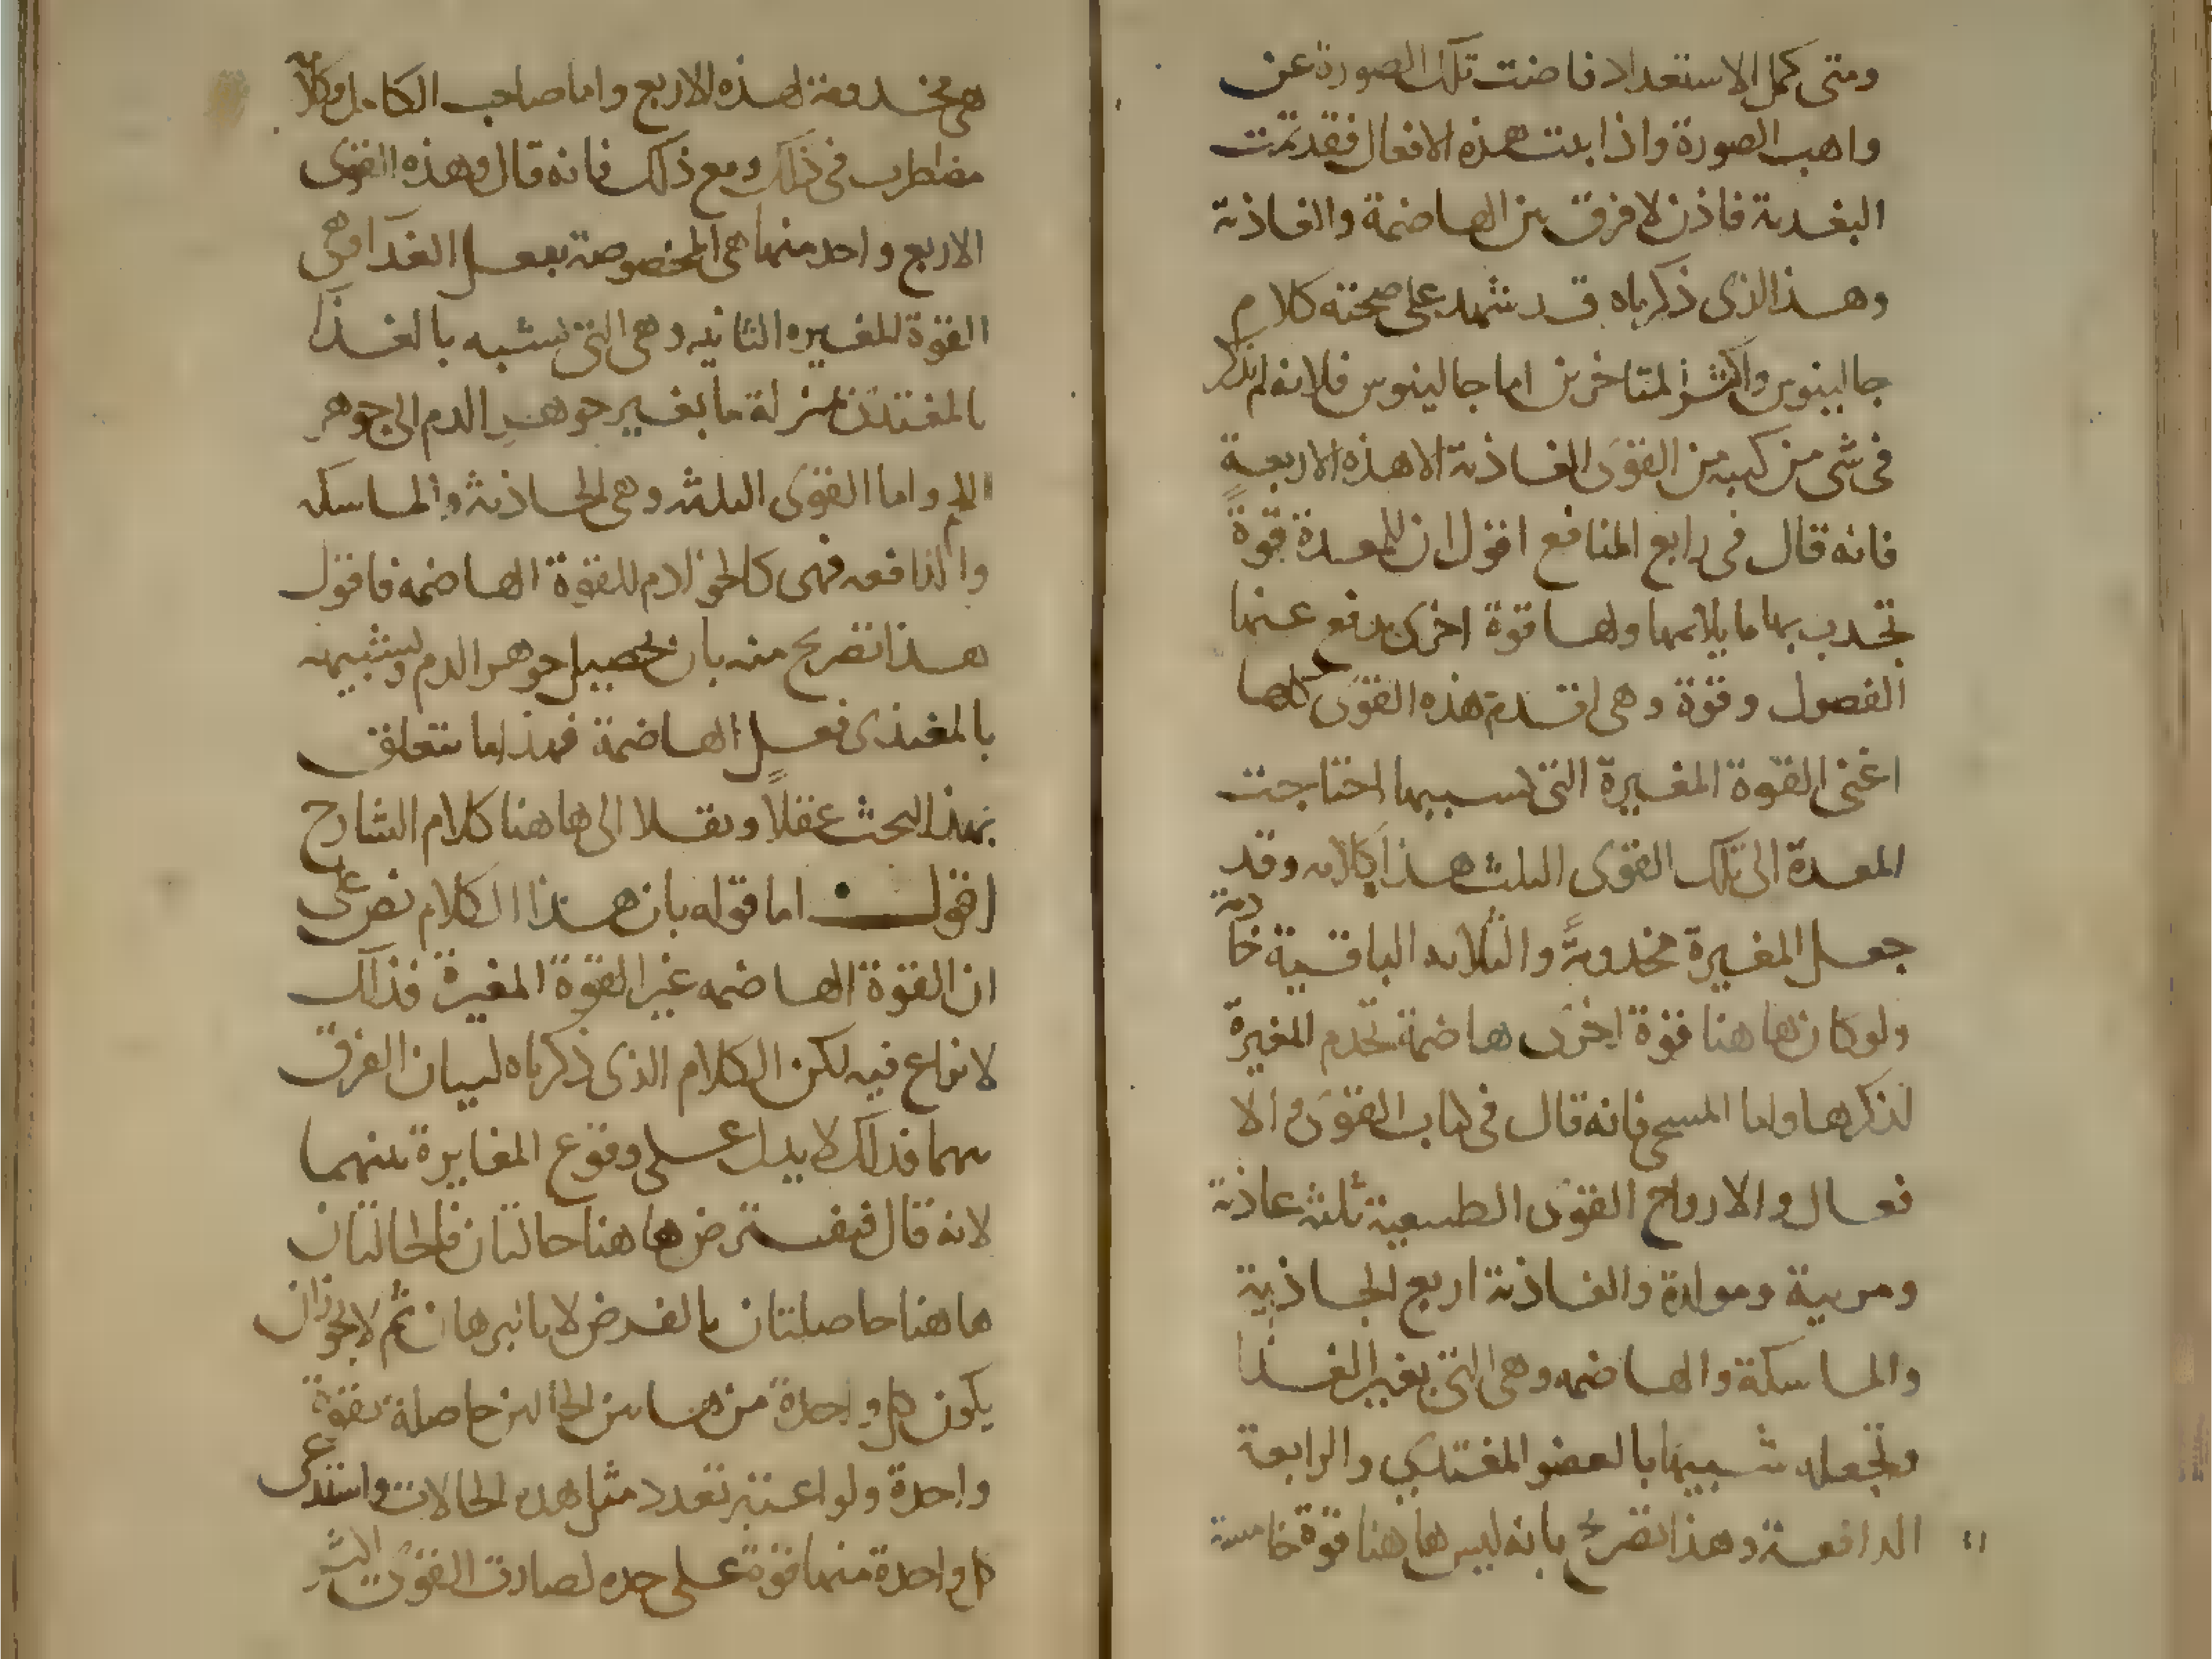 ومتى كمل الاستعداد فاضت تلك الصورة عن
واهب الصورة واذا بدت هذه الافعال فقد تمت
التغذية فاذن لا فرق بين الهاضمة والغاذية
وهذا الذى ذكرناه قد شهد على صحته كلام
جالينوس واكثر المتاخرين اما جالينوس فلانه لم يذكر
فى شى من كتبه من القوى الغاذية الا هذه الاربعة
فانه قال فى رابع المنافع اقول ان للمعدة قوة
تجذب بها ما يلائمها ولها قوة اخرى يدفع عنها
الفضول وقوة وهى اقدم هذه القوى كلها
اعنى القوة المغيرة التى بسببها احتاجت
المعدة الى تلك القوى الثلث هذا كلامه وقد
جعل المغيرة مخدومة والثلاثه الباقية خادمة
ولو كان هاهنا قوة اخرى هاضمة تخدم المغيرة
لذكرها واما المسيحى فانه قال فى كتاب القوى والا
فعال والارواح القوى الطبيعية ثلثة غاذية
ومربية ومولدة والغاذية اربع الجاذبة
والماسكة والهاضمه وهى التى بغير الغذا
وتجعله شبيها بالعضو المغتذى والرابعة
الدافعة وهذا تصريح بانه ليس هاهنا قوة خامسة
هى مخدومة لهذه الاربع واما صاحب الكامل وكلامه
مضطرب فى ذلك ومع ذلك فانه قال وهذه القوى
الاربع واحد منها هى المخصوصة بفعل الغذا وهى
القوة المغيره الثانيه وهى التى تشبه بالغذا
بالمغتذى بمنزلة ما بغير جوهر الدم الى جوهر
اللحم واما القوى الثلثه وهى الجاذبة والماسكه
والدافعه فهى كالخوادم للقوة الهاضمه فاقول
هذا تصريح منه بان تحصيل جوهر الدم وتشبيهه
بالمغتذى فعل الهاضمة فهذا ما يتعلق
بهذا البحث عقلاً ونقلا الى هاهنا كلام الشارح
اقول اما قوله بان هذا الكلام نص على
ان القوة الهاضمه غير القوة المغيرة فذلك
لا نزاع فيه لكن الكلام الذى ذكرناه لبيان الفرق
بينهما فذلك لا يدل على وقوع المغايرة بينهما
لانه قال فيفترض هاهنا حالتان فالحالتان
هاهنا حاصلتان بالفرض لا بالبرهان ثم لا يجوز ان
يكون كل واحدة من هاتين الحالتين حاصلة بقوة
واحدة ولو اعتبر تعدد مثل هذه الحالات واستدعى
كل واحدة منها قوة على حده لصارت القوى